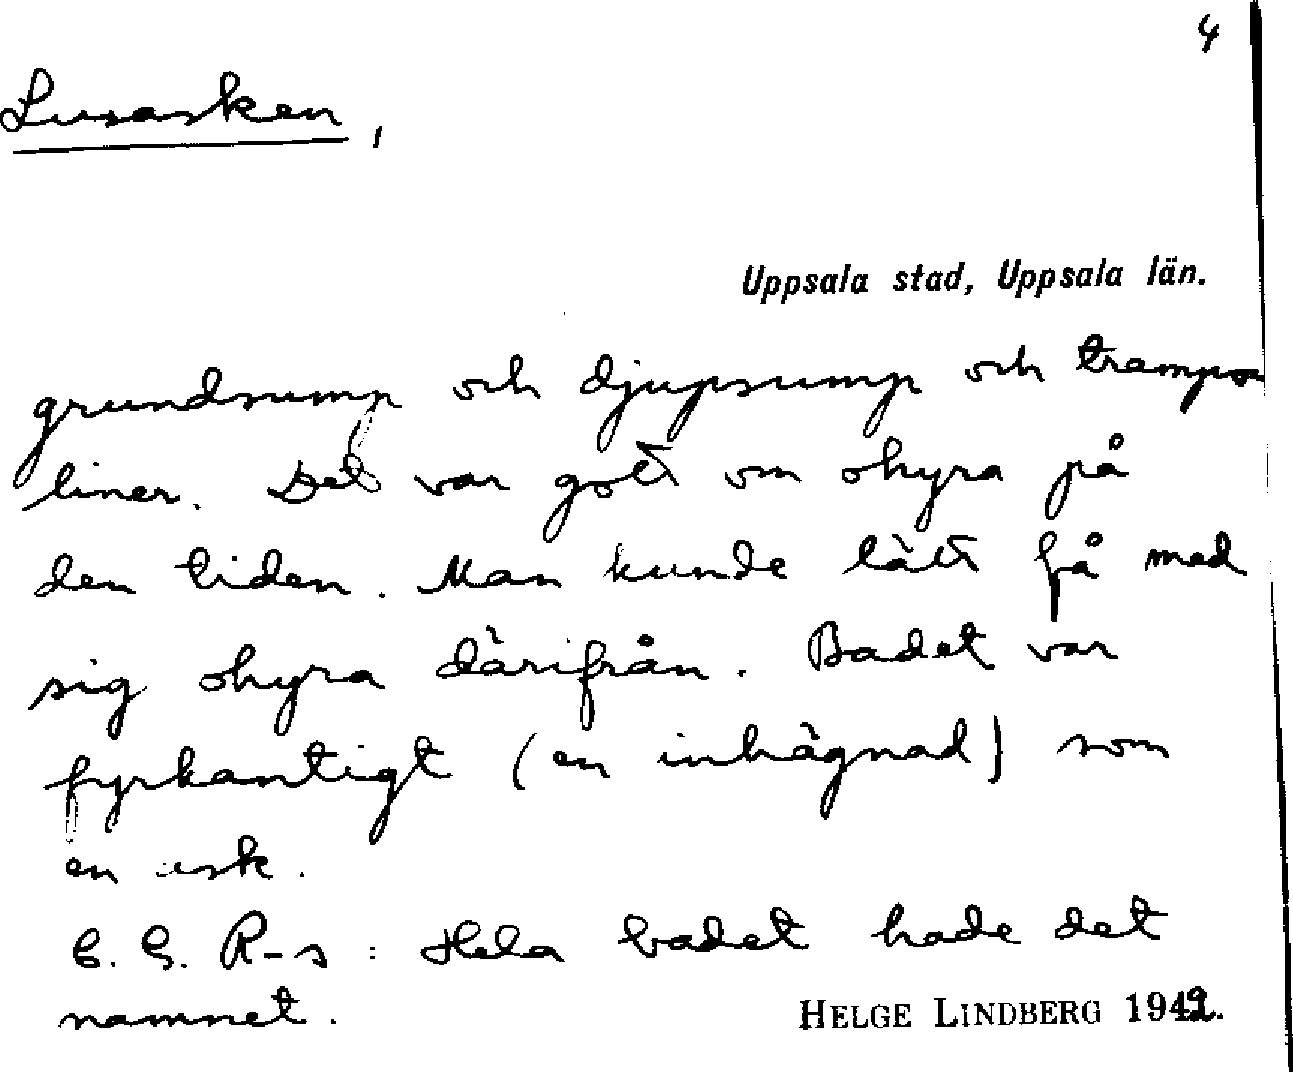 4
Lusasken,
Uppsala stad, Uppsala län.
grundsump och djupsump och trampo
liner. Det var gott om ohyra på
den tiden. Man kunde lätt få med
sig ohyra därifrån. Badet var
fyrkantigt (en inhägnad) som
en ask.
C. G. R-s: Hela badet hade det
namnet.
HELGE LINDBERG 1942.